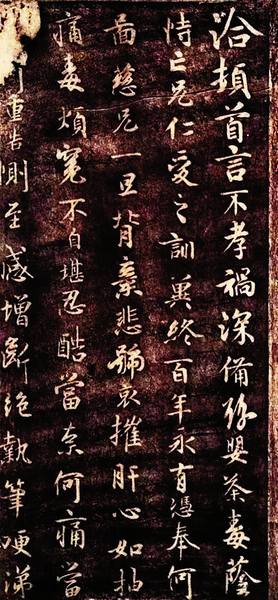 洽頓首言不孝禍深備豫嬰荼毒蔭
恃亡兄仁愛之訓冀終百年永有憑奉何
啚慈兄一旦背棄悲號哀摧肝心如抽
痛毒煩冤不自堪忍酷當奈何痛當
重告惻至感增斷絕執筆哽涕